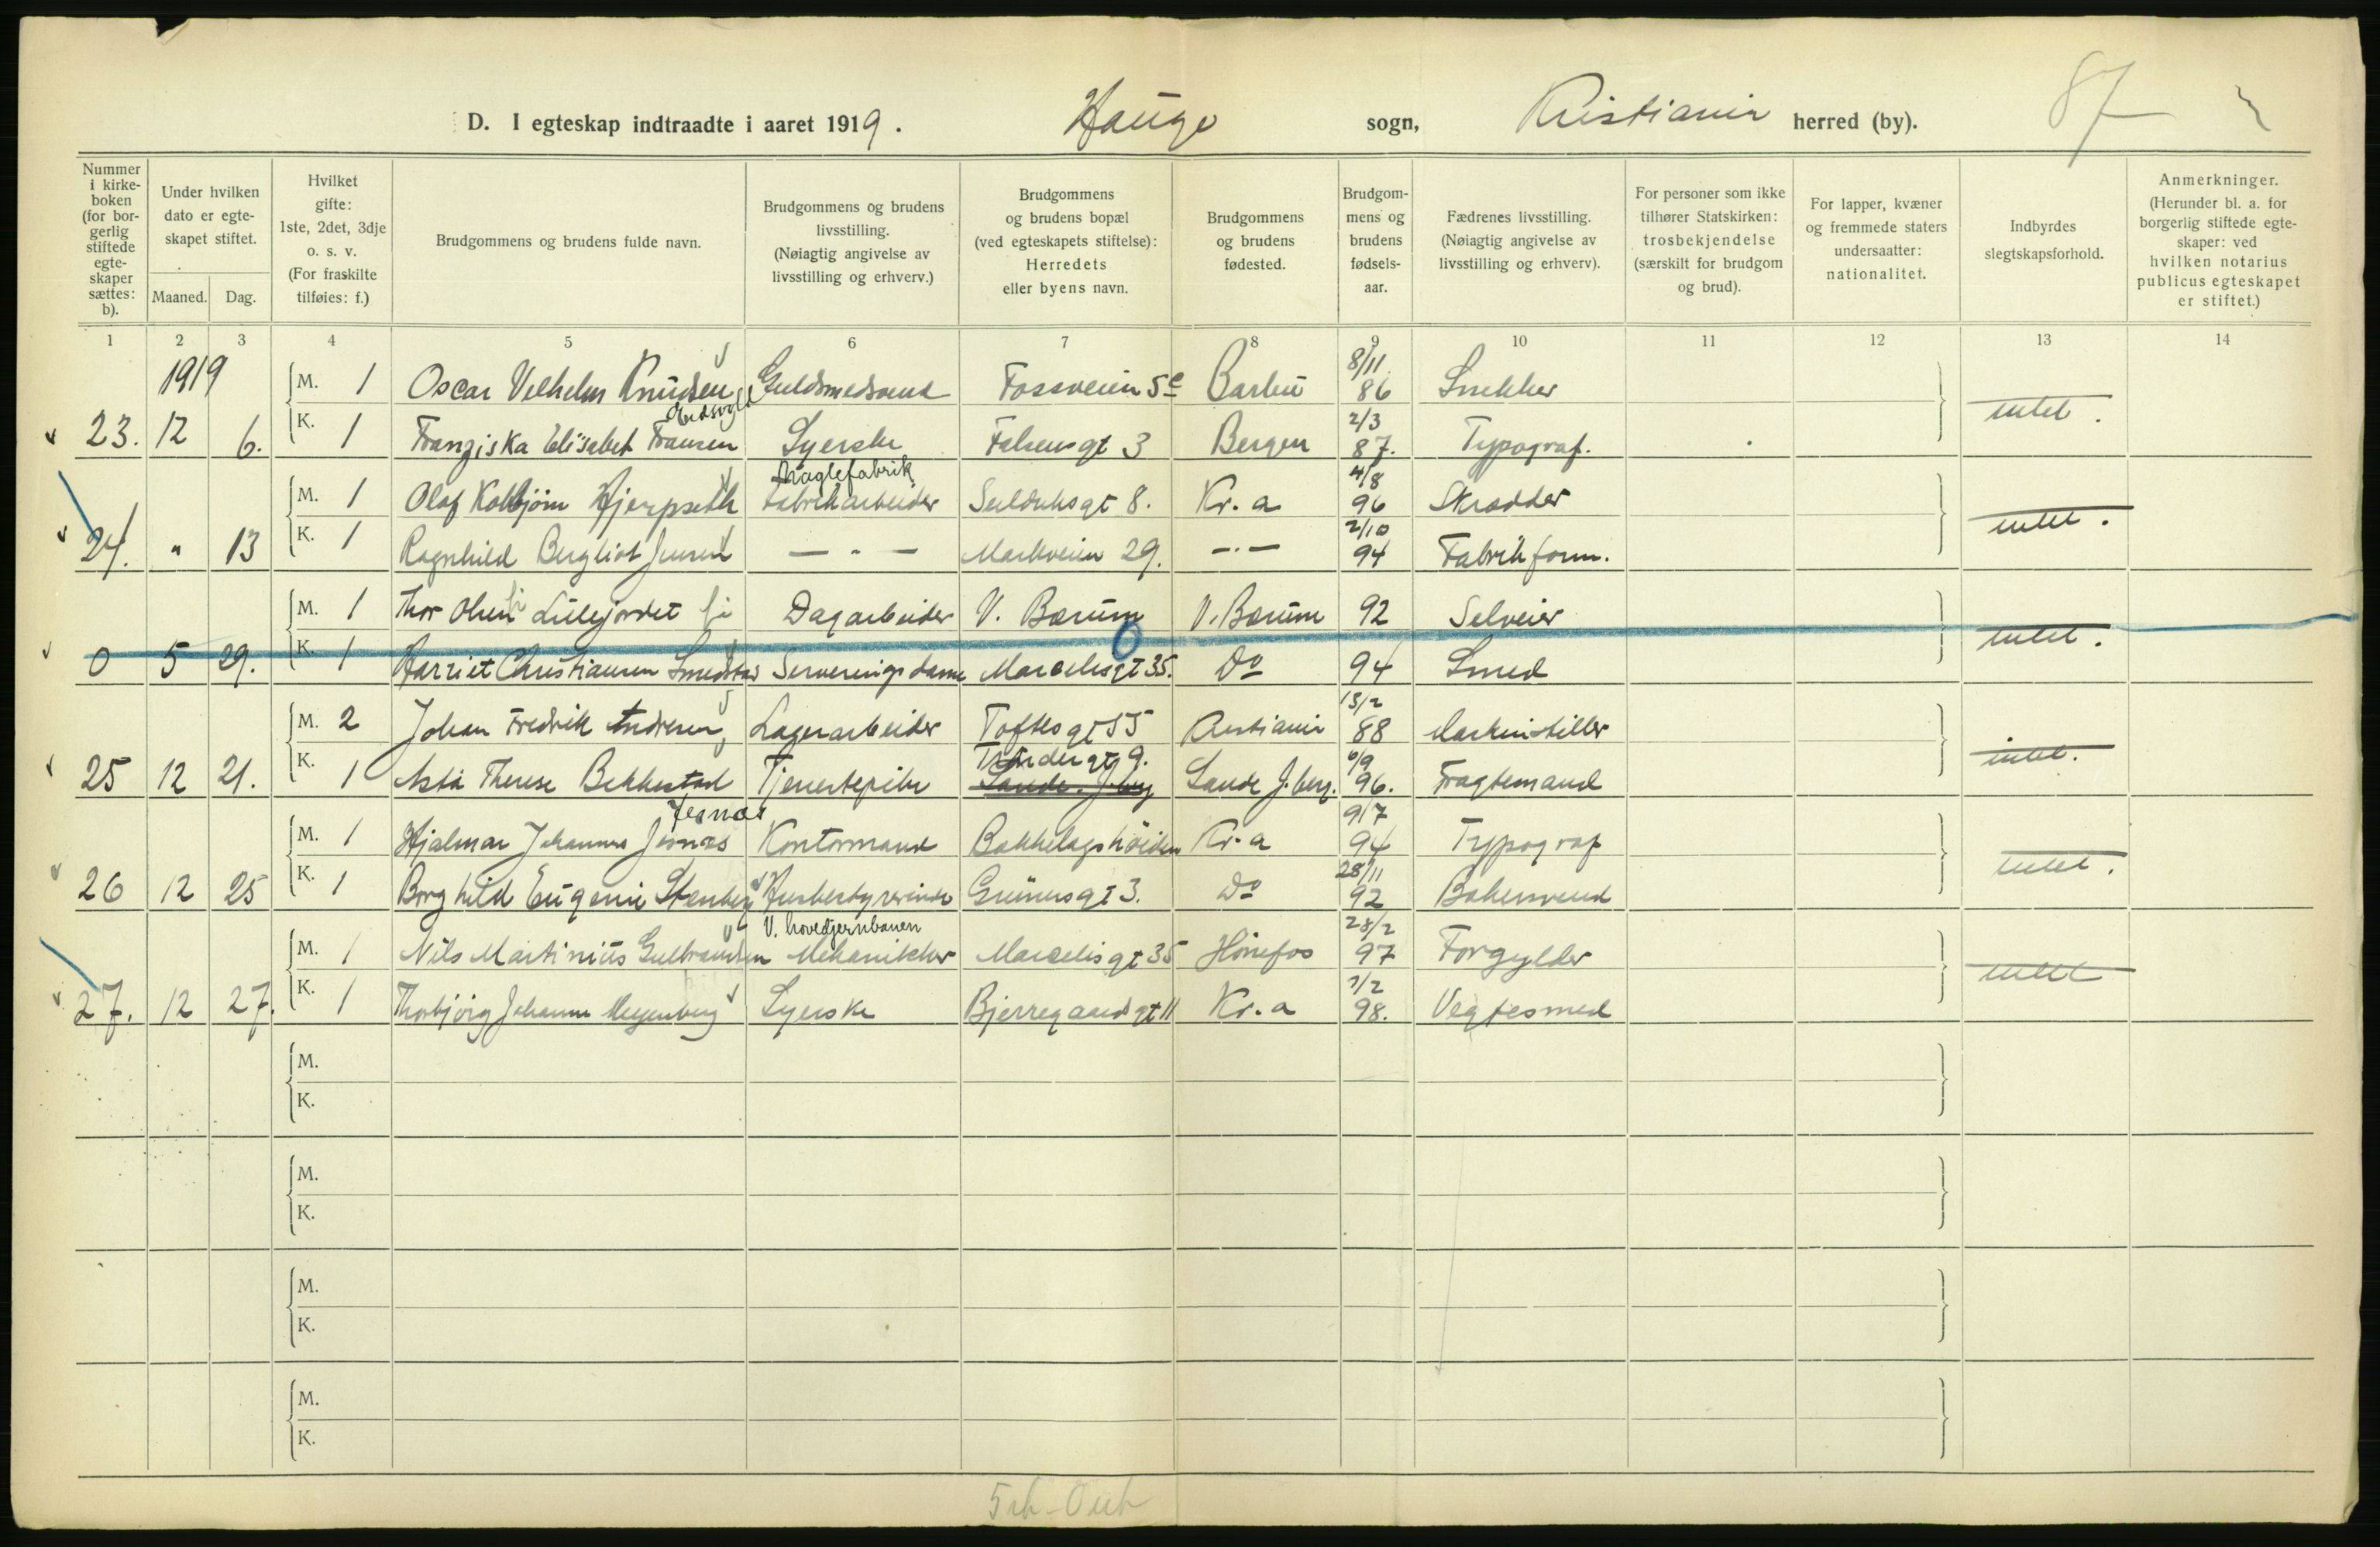 87
D. I egteskap indtraadte i aaret 1919. Hauge sogn, Kristiania herred (by).
Nummer i kirkeboken (for borgerlig stiftede egteskaper sættes: b).
Under hvilken dato er egteskapet stiftet.
Maaned. Dag.
Hvilket gifte: 1ste, 2det, 3dje o. s. v. (For fraskilte tilføies: f.)
Brudgommens og brudens fulde navn.
Brudgommens og brudens livsstilling. (Nøiagtig angivelse av livsstilling og erhverv.)
Brudgommens og brudens bopæl (ved egteskapets stiftelse): Herredets eller byens navn.
Brudgommens og brudens fødested.
Brudgommens og brudens fødselsaar.
Fædrenes livsstilling. (Nøiagtig angivelse av livsstilling og erhverv).
For personer som ikke tilhører Statskirken: trosbekjendelse (særskilt for brudgom og brud).
For lapper, kvæner og fremmede staters undersaatter: nationalitet.
Indbyrdes slegtskapsforhold.
Anmerkninger. (Herunder bl. a. for borgerlig stiftede egteskaper: ved hvilken notarius publicus egteskapet er stiftet.)
1 2 3 4 5 6 7 8 9 10 11 12 13 14
1919 M. 1 Oscar Vilhelm Knudsen Guldsmedsvend Fossveien 5c Barbu 8/11 86 Snekker intet.
23. 12 6. K. 1 Franziska Elisabet Fransen Eidsvold Syerske Falsensgt 3 Bergen 2/3 87. Typograf.
Naglefabrik
M. 1 Olaf Kolbjörn Hjerpseth Fabrikarbeider Seilduksgt 8. Kr.a 4/8 96 Skrædder intet.
24. " 13 K. 1 Ragnhild Bergliot Jensen — " — Markveien 29. — . — 2/10 94 Fabrikform.
M. 1 Thor Olsen Lillejordet Dagarbeider V. Bærum V. Bærum 92 Selveier intet.
0 5 29. K. 1 Harriet Christiansen Smedstad Serveringsdame Marcelisgt 35. Do 94 Smed
M. 2 Johan Fredrik Andresen, Lagerarbeider Toftesgt 55 Kristiania 13/2 88 Maskinstiller intet.
Trondergt 9.
25 12 21. K. 1 Asta Therese Bekkestad Tjenestepike Sande J.berg Sande J.berg. 6/9 96. Fragtemand
Jernæs
M. 1 Hjalmar Johannes Jernæs Kontormand Bækkelagshöiden Kr.a 9/7 94 Typograf intet.
26 12 25 K. 1 Borghild Eugenie Stenberg Husbestyrerinde Grünersgt 3. Do 28/11 92 Bakersvend
V. hovedjernbanen
M. 1 Nils Martinius Gulbrandsen Mekaniker Marcelisgt 35 Hönefos 28/2 97 Forgylder intet
27. 12 27. K. 1 Thorbjörg Johanne Meyenberg Syerske Bjerregaardsgt 11 Kr.a 7/2 98. Vegtesmed
M.
K.
M.
K.
M.
K.
M.
K.